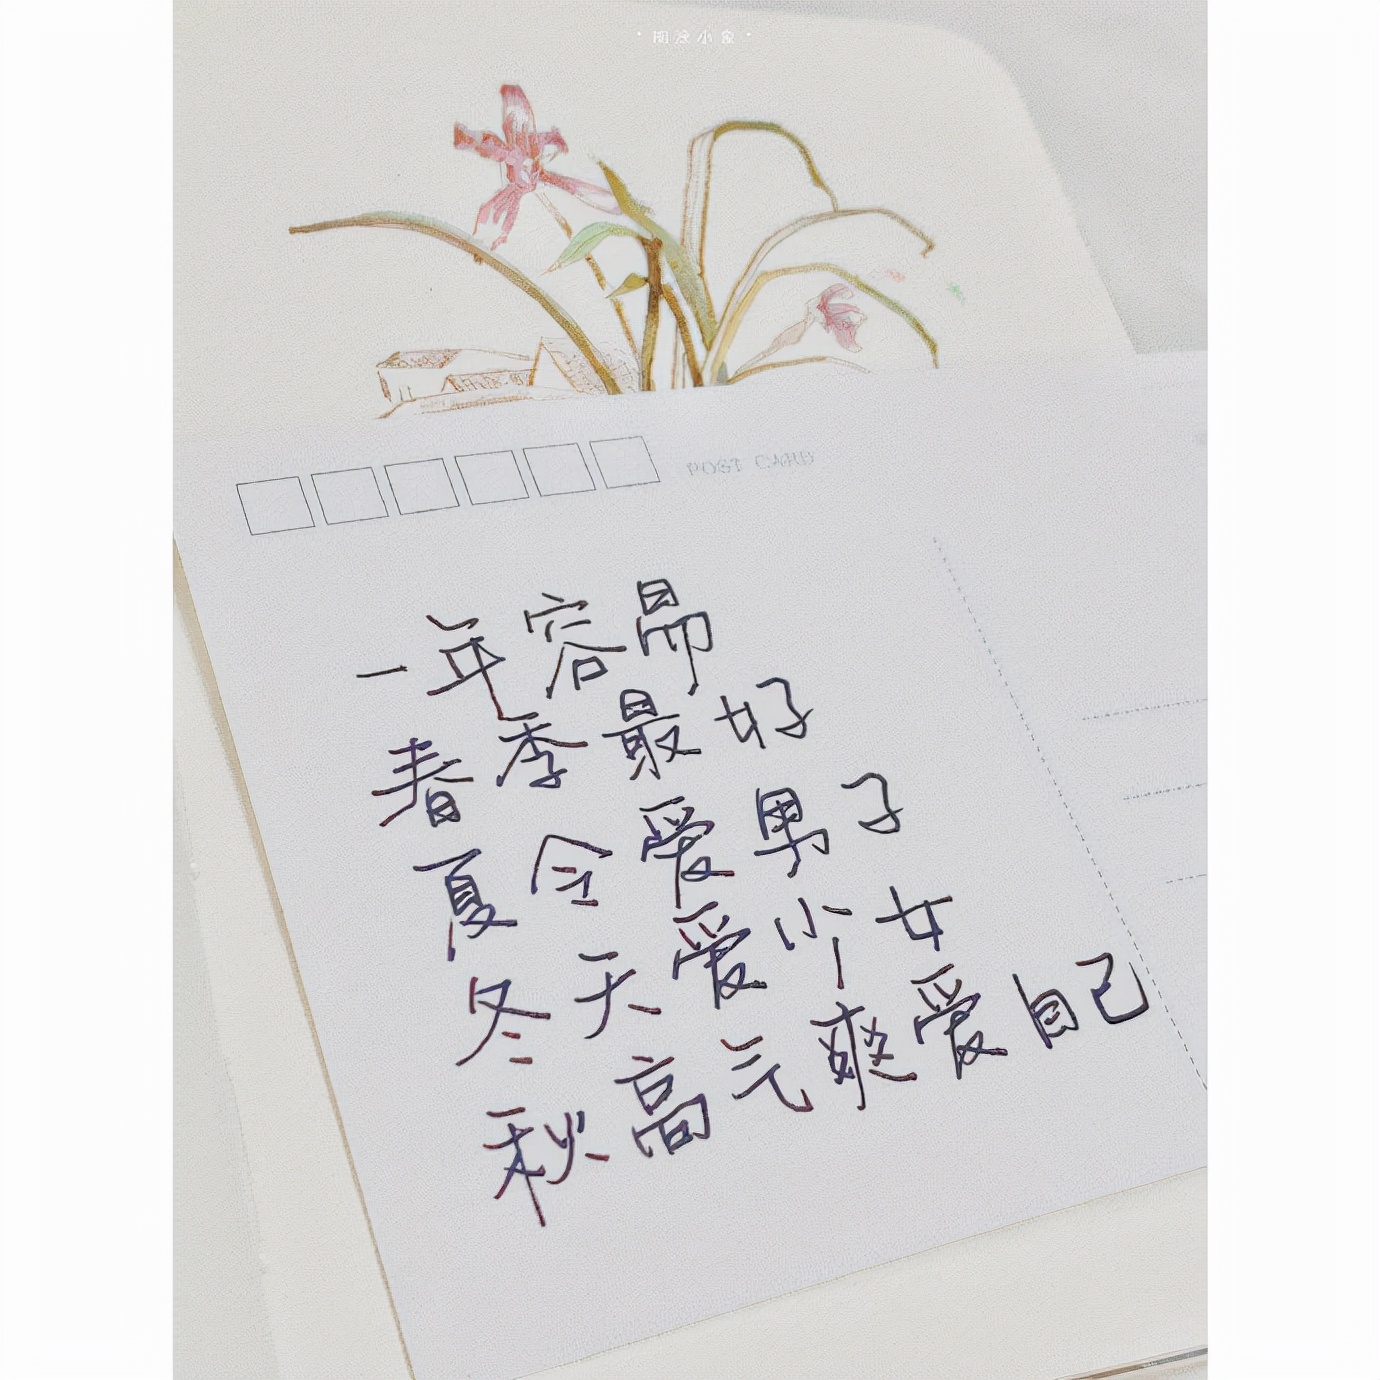 小象
POST CARD
一年容易
春季最好
夏令爱男子
冬天爱少女
秋高元爽爱自己